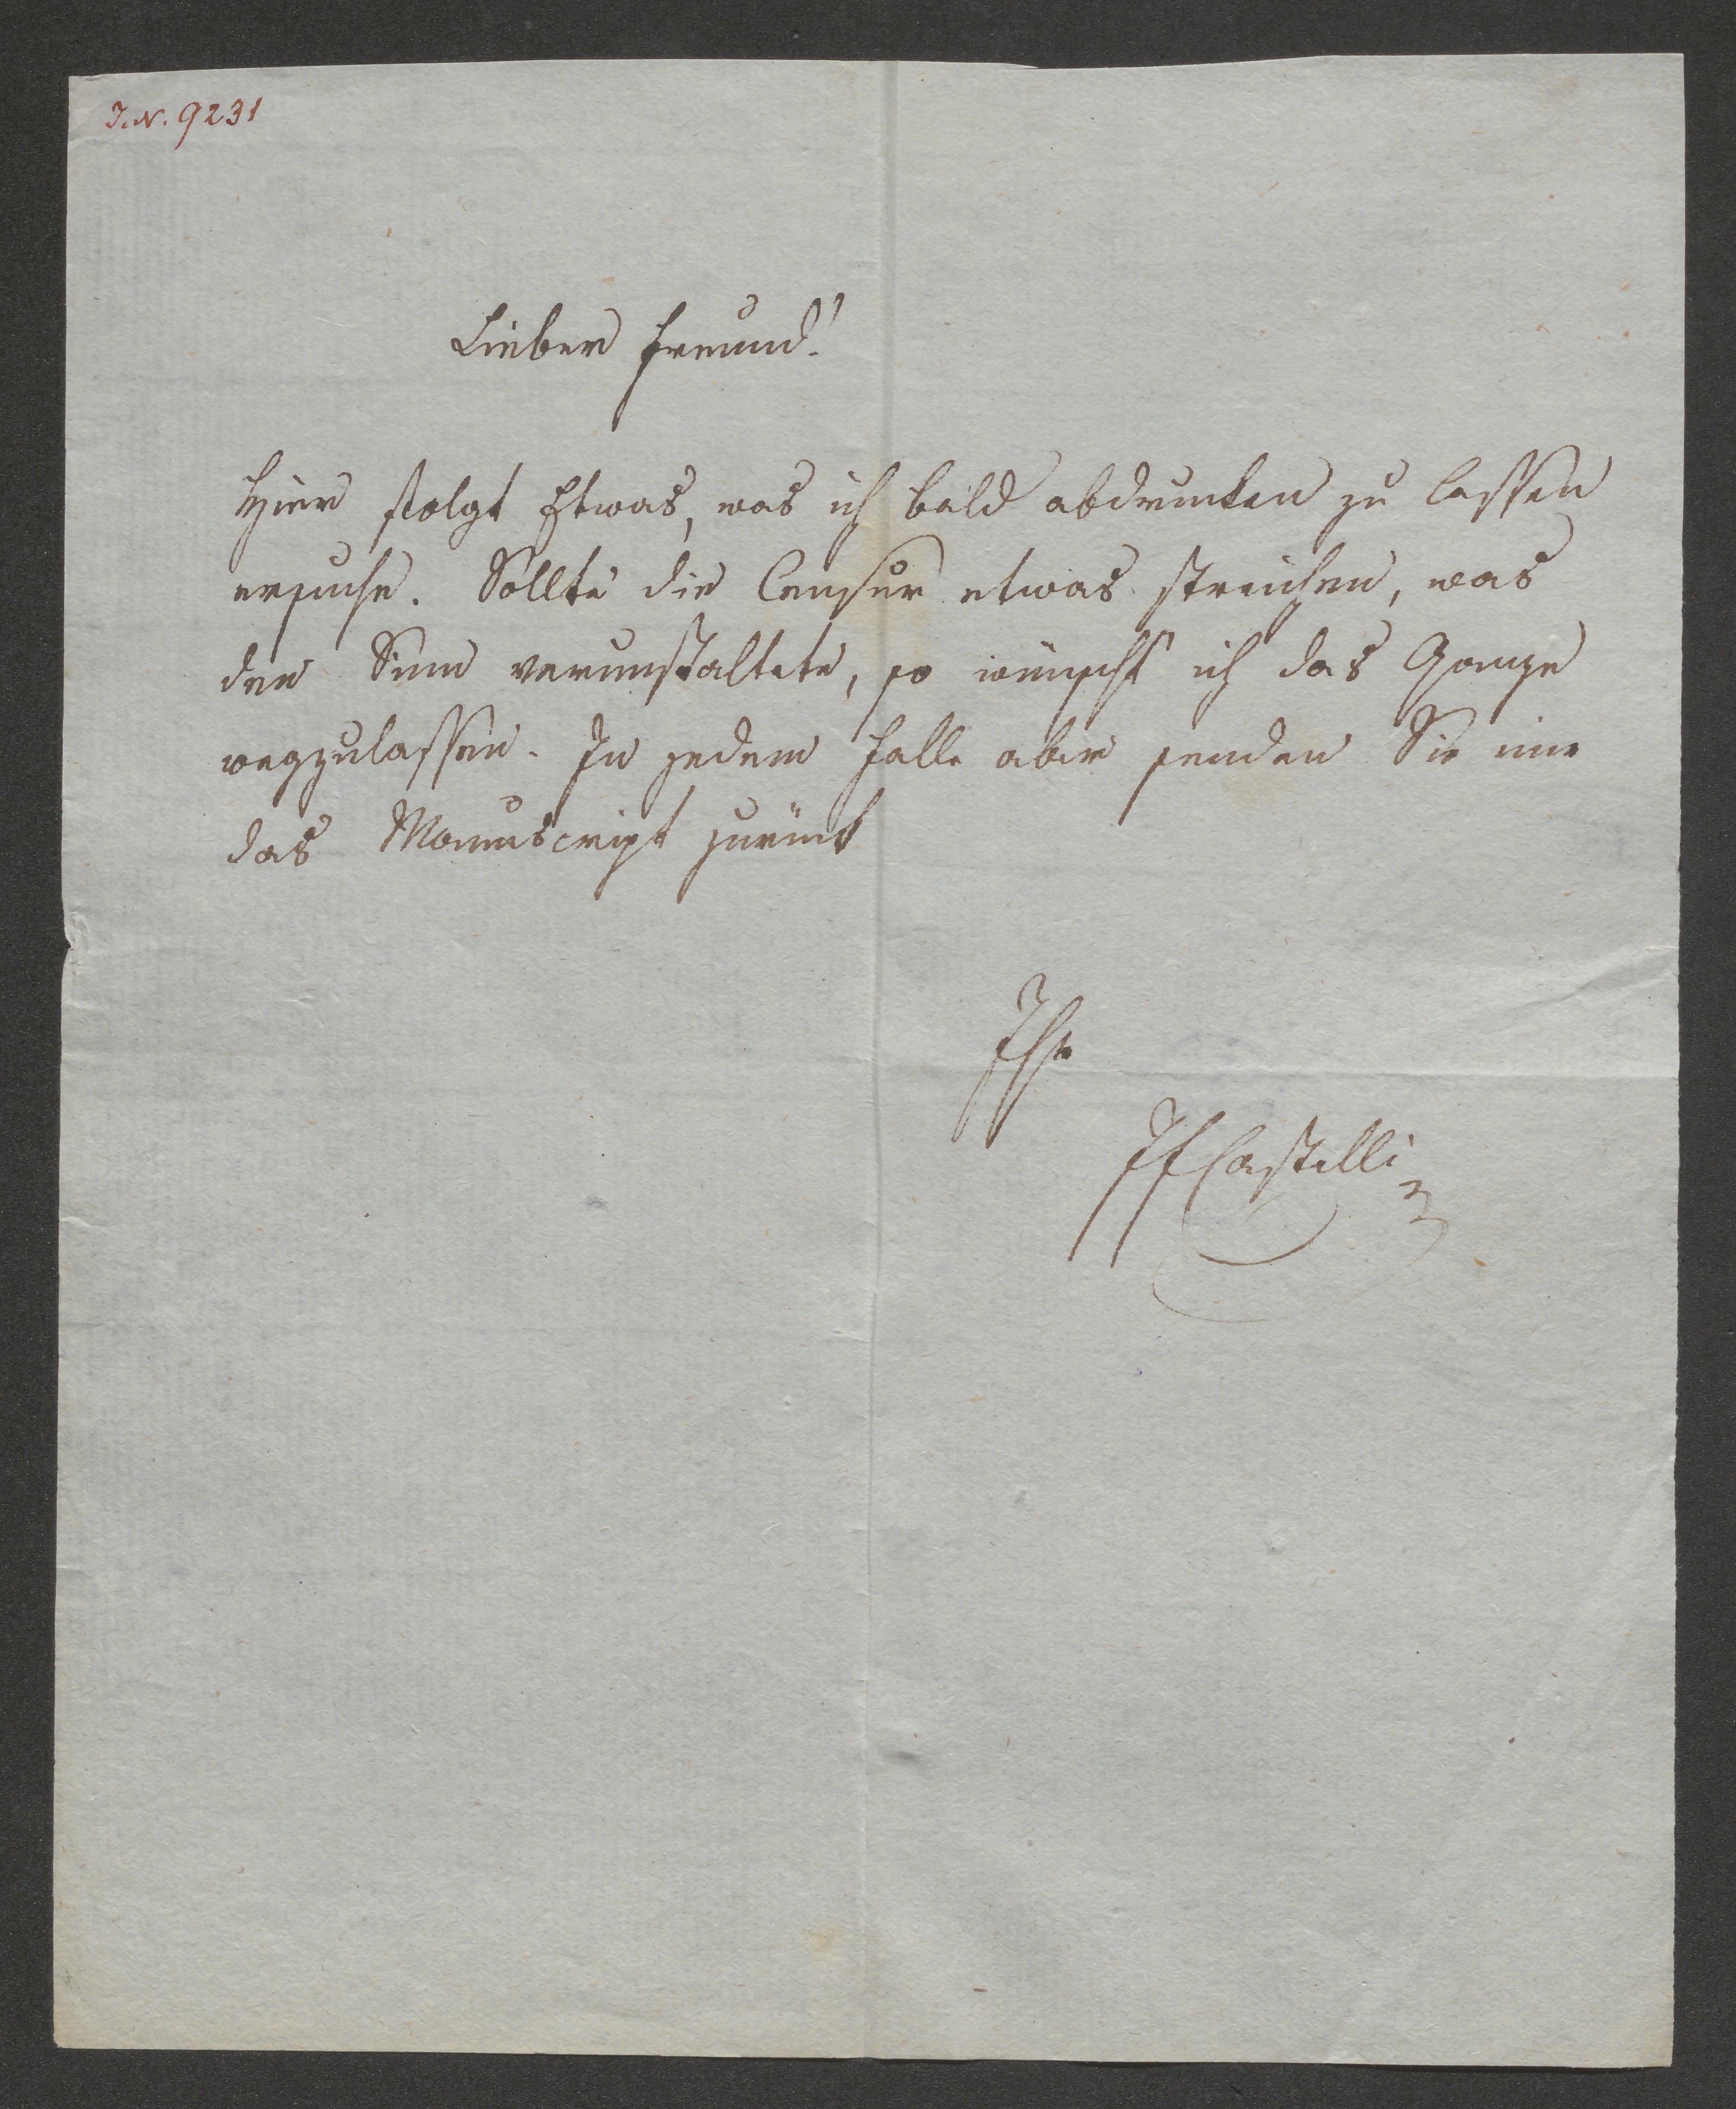 I. N. 9231
Lieber Freund!
Hier folgt Etwas, was ich bald abdrucken zu lassen
ersuche. Sollte die Censur etwas streichen, was
den Sinn verunstaltete, so wünscht ich das Ganze
wegzulassen. In jedem Falle aber senden Sie mir
das Manuscript zurück
Ihr
IFCastelli